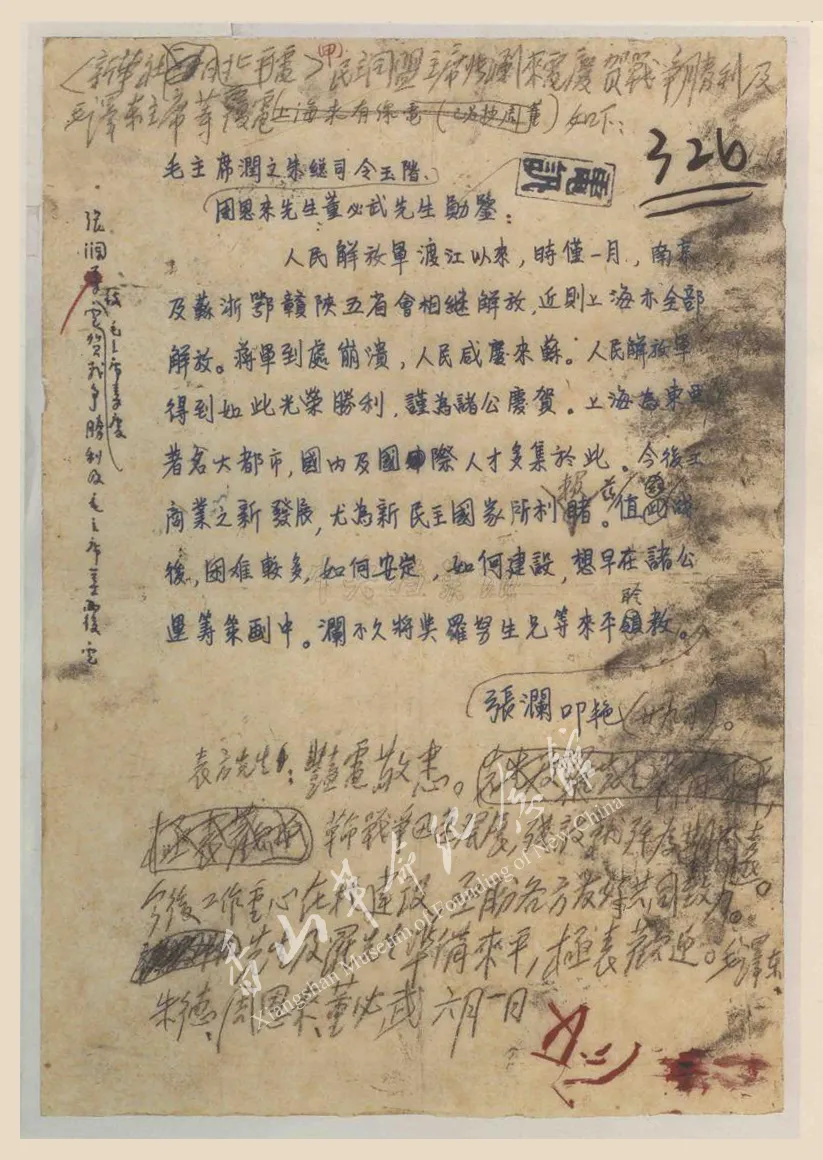 〈新華社 北平電〉(甲)民主同盟主席張瀾來電慶賀戰爭勝利及
毛澤東主席等覆電 如下:
電訊
326
毛主席潤之朱總司令玉階、
周恩來先生董必武先生勛鑒:
人民解放軍渡江以來,時僅一月,南京
及蘇浙鄂贛陝五省會相繼解放,近則上海亦全部
解放。蔣軍到處崩潰,人民咸慶來蘇。人民解放軍
得到如此光榮勝利,謹為諸公慶賀。上海為東西
著名大都市,國內及國際人才多集於此。今後工
商業之新發展,尤為新民主國家所利賴。值茲戰
後,困难較多,如何安定,如何建設,想早在諸公
運籌策畫中。瀾不久將與羅努生兄等來平聆教。
張瀾叩艳(廿九日)。
表方先生:豔電敬悉。
革命戰爭迅速
今後工作重心在於建設,亟盼各方友好共同致力。
先生及羅先生準備來平,極表歡迎。毛澤東、
朱德、周恩來、董必武 六月一日
張瀾電賀戰爭勝利及毛主席等覆電
香山革命紀念館
Xiangshan Museum of Founding of New China